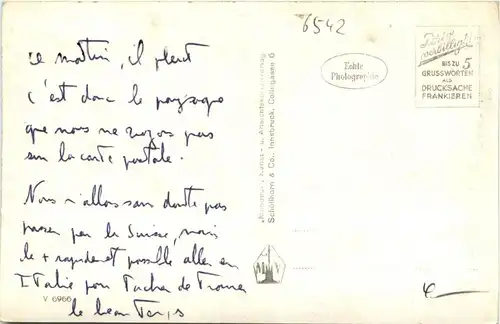 6542
ce matin, il pleut
c'est donc le paysage
que nous ne voyons pas
sur la carte postale.
Nous n'allons sans doute pas
passer par la Suisse, mais
le + rapidement possible aller en
Italie pour tacher de trouver
le beau temps
V 6966
Echte
Photographie
Schöllhorn & Co., Innsbruck, Colingasse 6
verbilligt!
BIS ZU 5
GRUSSWORTEN
ALS
DRUCKSACHE
FRANKIEREN